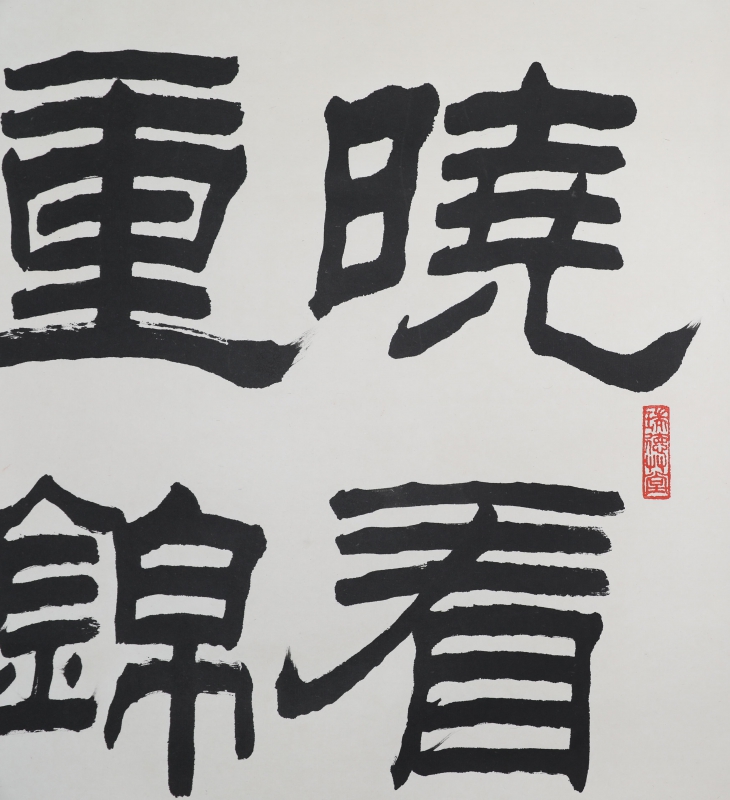 曉看
重錦